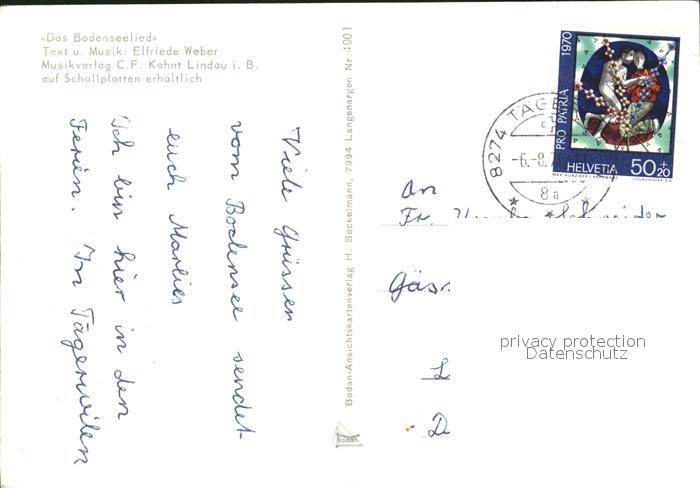 «Das Bodenseelied»
Text u. Musik: Elfriede Weber
Musikverlag C.F. Kahnt Lindau i. B.
auf Schallplatten erhältlich
Viele Grüssen
vom Bodensee sendet
euch Marlies
Ich bin hier in den
Ferien. In Tägerwilen
Bodan-Ansichtskartenverlag H. Bockelmann, 7994 Langenargen Nr. 4001
bodan
1970
PRO PATRIA
HELVETIA 50+20
8274 TÄGE
-6.-8.7
8a
An
Fr.
Gäs
L
D
privacy protection
Datenschutz